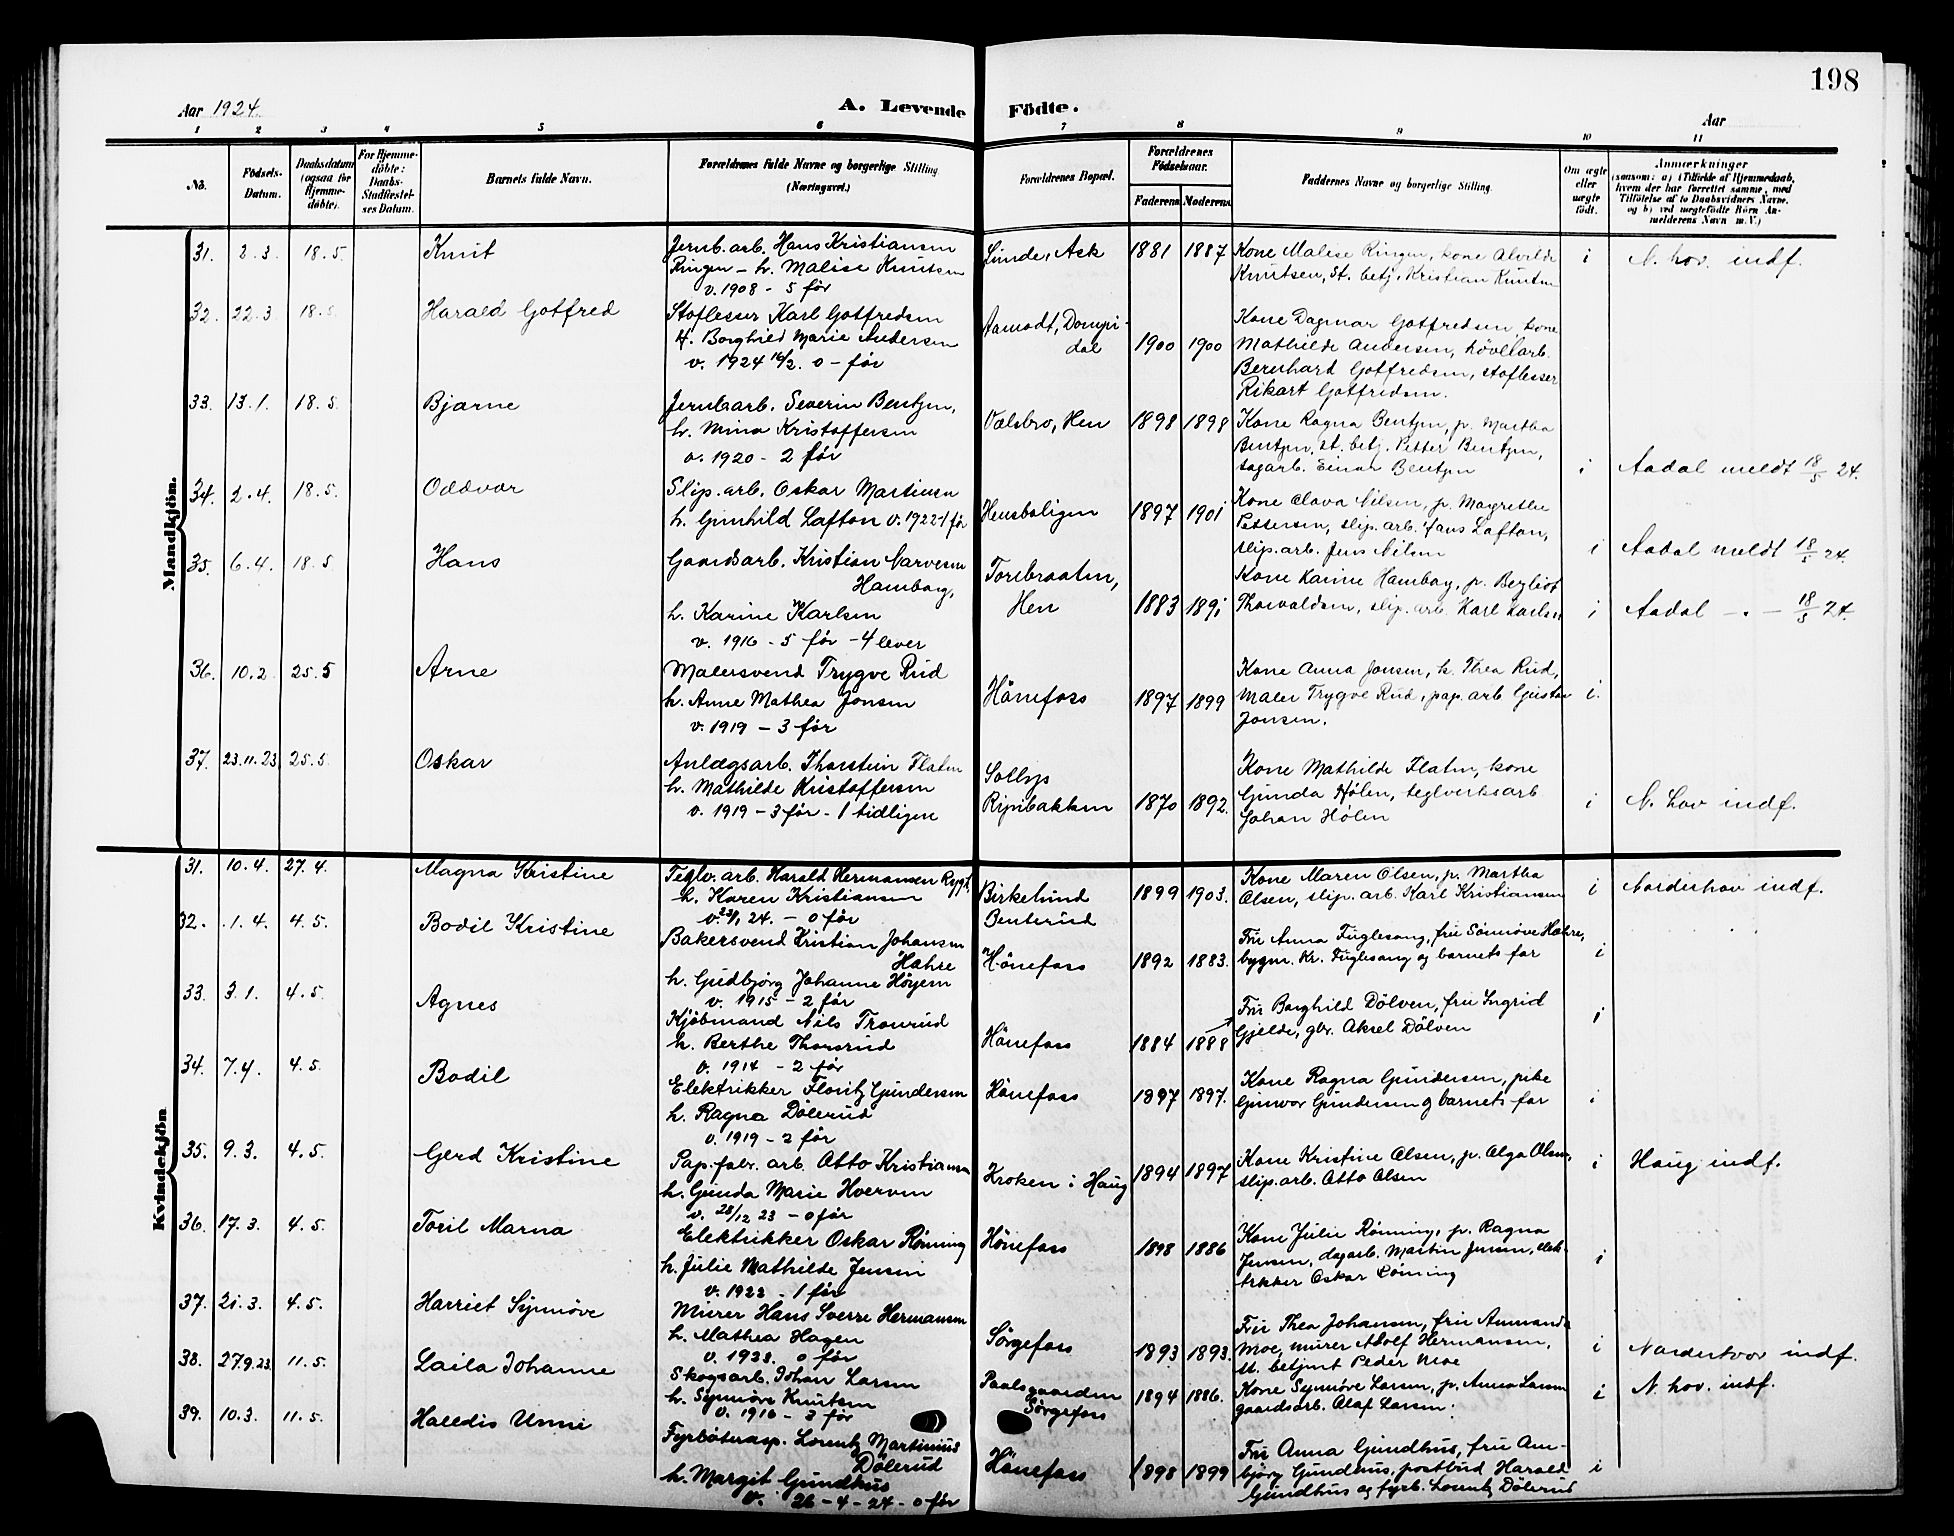 198
Aar 1924.
A. Levende Födte.
Aar
1 2 3 4 5 6 7 8 9 10 11
No.
Födsels-Datum.
Daabsdatum (ogsaa for Hjemme-döbte).
For Hjemme-döbte: Daabs-Stadfæstel-ses Datum.
Barnets fulde Navn.
Forældrenes fulde Navne og borgerlige Stilling (Næringsvei.)
Forældrenes Bopæl.
Forældrenes Födselsaar.
Faderens Moderens
Faddernes Navne og borgerlige Stilling.
Om ægte eller uægte födt.
Anmærkninger
(saasom: a) i Tilfælde af Hjemmedaab, hvem der har forrettet samme, med Tilföielse af to Daabsvidners Navne, og b) ved uægtefödte Börn An-melderens Navn m. V.)
Mandkjön.
31. 2.3. 18.5 Knut
Jernb.arb. Hans Kristiansen
Ringen - h. Malise Knutsen
v. 1908 - 5 før
Lunde, Ask 1881 1887
Kone Malise Ringen, kone Alvilde
Knutsen, st. betj. Kristian Knutsen
i N. hov. indf.
32. 22.3 18.5 Harald Gotfred
Stoflesser Karl Gotfredsen
H. Borghild Marie Andersen
v. 1924 16/2. 0 - før
Aamodt, 1900 1900
Kone Dagmar Gotfredsen, kone
Mathilde Andersen, høvlarb.
Bernhart Gotfredsen, stoflesser
Rikart Gotfredsen.
33. 13.1. 18.5. Bjarne
Jernb.arb. Severin Bentzen,
h. Mina Kristoffersen
v. 1920 - 2 før
Valsbro, Hen 1898 1898
Kone Ragna Bentzen, p. Martha
Bentzen, st. betj. Petter Bentzen,
sagarb. Einar Bentzen
i Aadal meldt 18/5 24.
34. 2.4. 18.5. Oddvar
Slip.arb. Oskar Martinsen
h. Gunhild Lafton v. 1922-1 før
Hensboligen 1897 1901
Kone Olava Nilsen, p. Margrethe
Pettersen, slip.arb. Hans Lafton,
slip.arb. Jens Nilsen
i Aadal meldt 18/5 24.
35. 6.4. 18.5 Hans
Gaardsarb. Kristian Narvesen
Hamborg,
h. Karine Karlsen
v. 1916 - 5 før - 4 lever
Torebraaten,
Hen 1883 1891
Kone Karine Hamborg, p. Bergliot
Thorvaldsen, slip.arb. Karl Karlsen
i Aadal - " - 18/5 24.
36. 10.2 25.5 Arne
Malersvend Trygve Rud
h. Anne Mathea Jonsen
v. 1919 - 3 før
Hönefoss 1897 1899
Kone Anna Jonsen, k. Thea Rud,
Maler Trygve Rud, pap.arb Gustav
Jonsen.
i.
37. 23.11.23 25.5. Oskar
Anlægsarb. Thorstein Flaten
h. Mathilde Kristoffersen
v. 1919 - 3 før - 1 tidligere
Solbys
Ripibakken 1870 1892.
Kone Mathilde Flaten, kone
Gunda Hølen, teglverksarb
Johan Hølen
i N. hov indf.
Kvindekjön
31. 10.4. 27.4. Magna Kristine
Teglv.arb. Harald Hermansen
h. Karen Kristiansen
24. - 0 før
Birkelund
Benterud 1899 1903.
Kone Maren Olsen, p. Martha
Olsen, slip.arb. Karl Kristiansen
i Norderhov indf.
32. 1.4. 4.5. Bodil Kristine
Bakersvend Kristian Johansen
Hæhre
h. Gudbjørg Johanne Höyem
v. 1915 - 2 før
Hönefoss 1892 1883.
Fru Anna Fuglesang, fru Sönnöve Hæhre,
bygm. Kr. Fuglesang og barnets far
i
33. 3.1. 4.5. Agnes
Kjöbmand Nils Tronrud
h. Berthe Thorsrud
v. 1914 - 2 før
Hönefoss 1884 1888
Fru Borghild Dölven, fru Ingrid
Gjelde, gbr. Aksel Dölven
i
34. 7.4. 4.5. Bodil
Elektrikker Floritz Gundersen
h. Ragna Dölerud
v. 1919 - 2 før
Hönefoss 1897 1897.
Kone Ragna Gundersen, pike
Gunvor Gundersen og barnets far
i
35. 9.3. 4.5. Gerd Kristine
Pap.fabr. arb. Otto Kristiansen
h. Gunda Marie Hverven
v. 28/12 23 - 0 før
Kroken i Haug 1894 1897
Kone Kristine Olsen, p. Olga Olsen,
slip.arb. Otto Olsen
i Haug indf.
36. 17.3. 4.5. Toril Marna
Elektrikker Oskar Rønning
h. Julie Mathilde Jensen
v. 1922 - 1 før
Hönefoss 1898 1886
Kone Julie Rønning, p. Ragna
Jensen, dagarb. Martin Jensen, elek-
trikker Oskar Rønning
i
37. 21.3. 4.5. Harriet Synnöve
Murer Hans Sverre Hermansen
h. Mathea Hagen
v. 1923. 0 før
Sørgefoss 1893 1893.
Fru Thea Johansen, fru Annanda
Moe, murer Adolf Hermansen,
st. betjent Peder Moe
i Norderhov indf.
38. 27.9.23. 11.5. Laila Johanne
Skogsarb. Johan Larsen
h. Synnöve Knutsen
v. 1916 - 3 før
Paalsgaarden
Sørgefoss 1894 1886.
Kone Synnöve Larsen, p. Anna Larsen
gaardsarb. Olaf Larsen.
i N. hov. indf.
39. 10.3. 11.5. Halldis Unni
Fyrbøterasp. Lorentz Martinius
Dölerud
h. Margit Gundhus
v. 26-4-24-0 før
Hönefoss 1898 1899
Fru Anna Gundhus, fru An-
bjørg Gundhus, postbud Harald
Gundhus og fyrb. Lorentz Dölerud
i